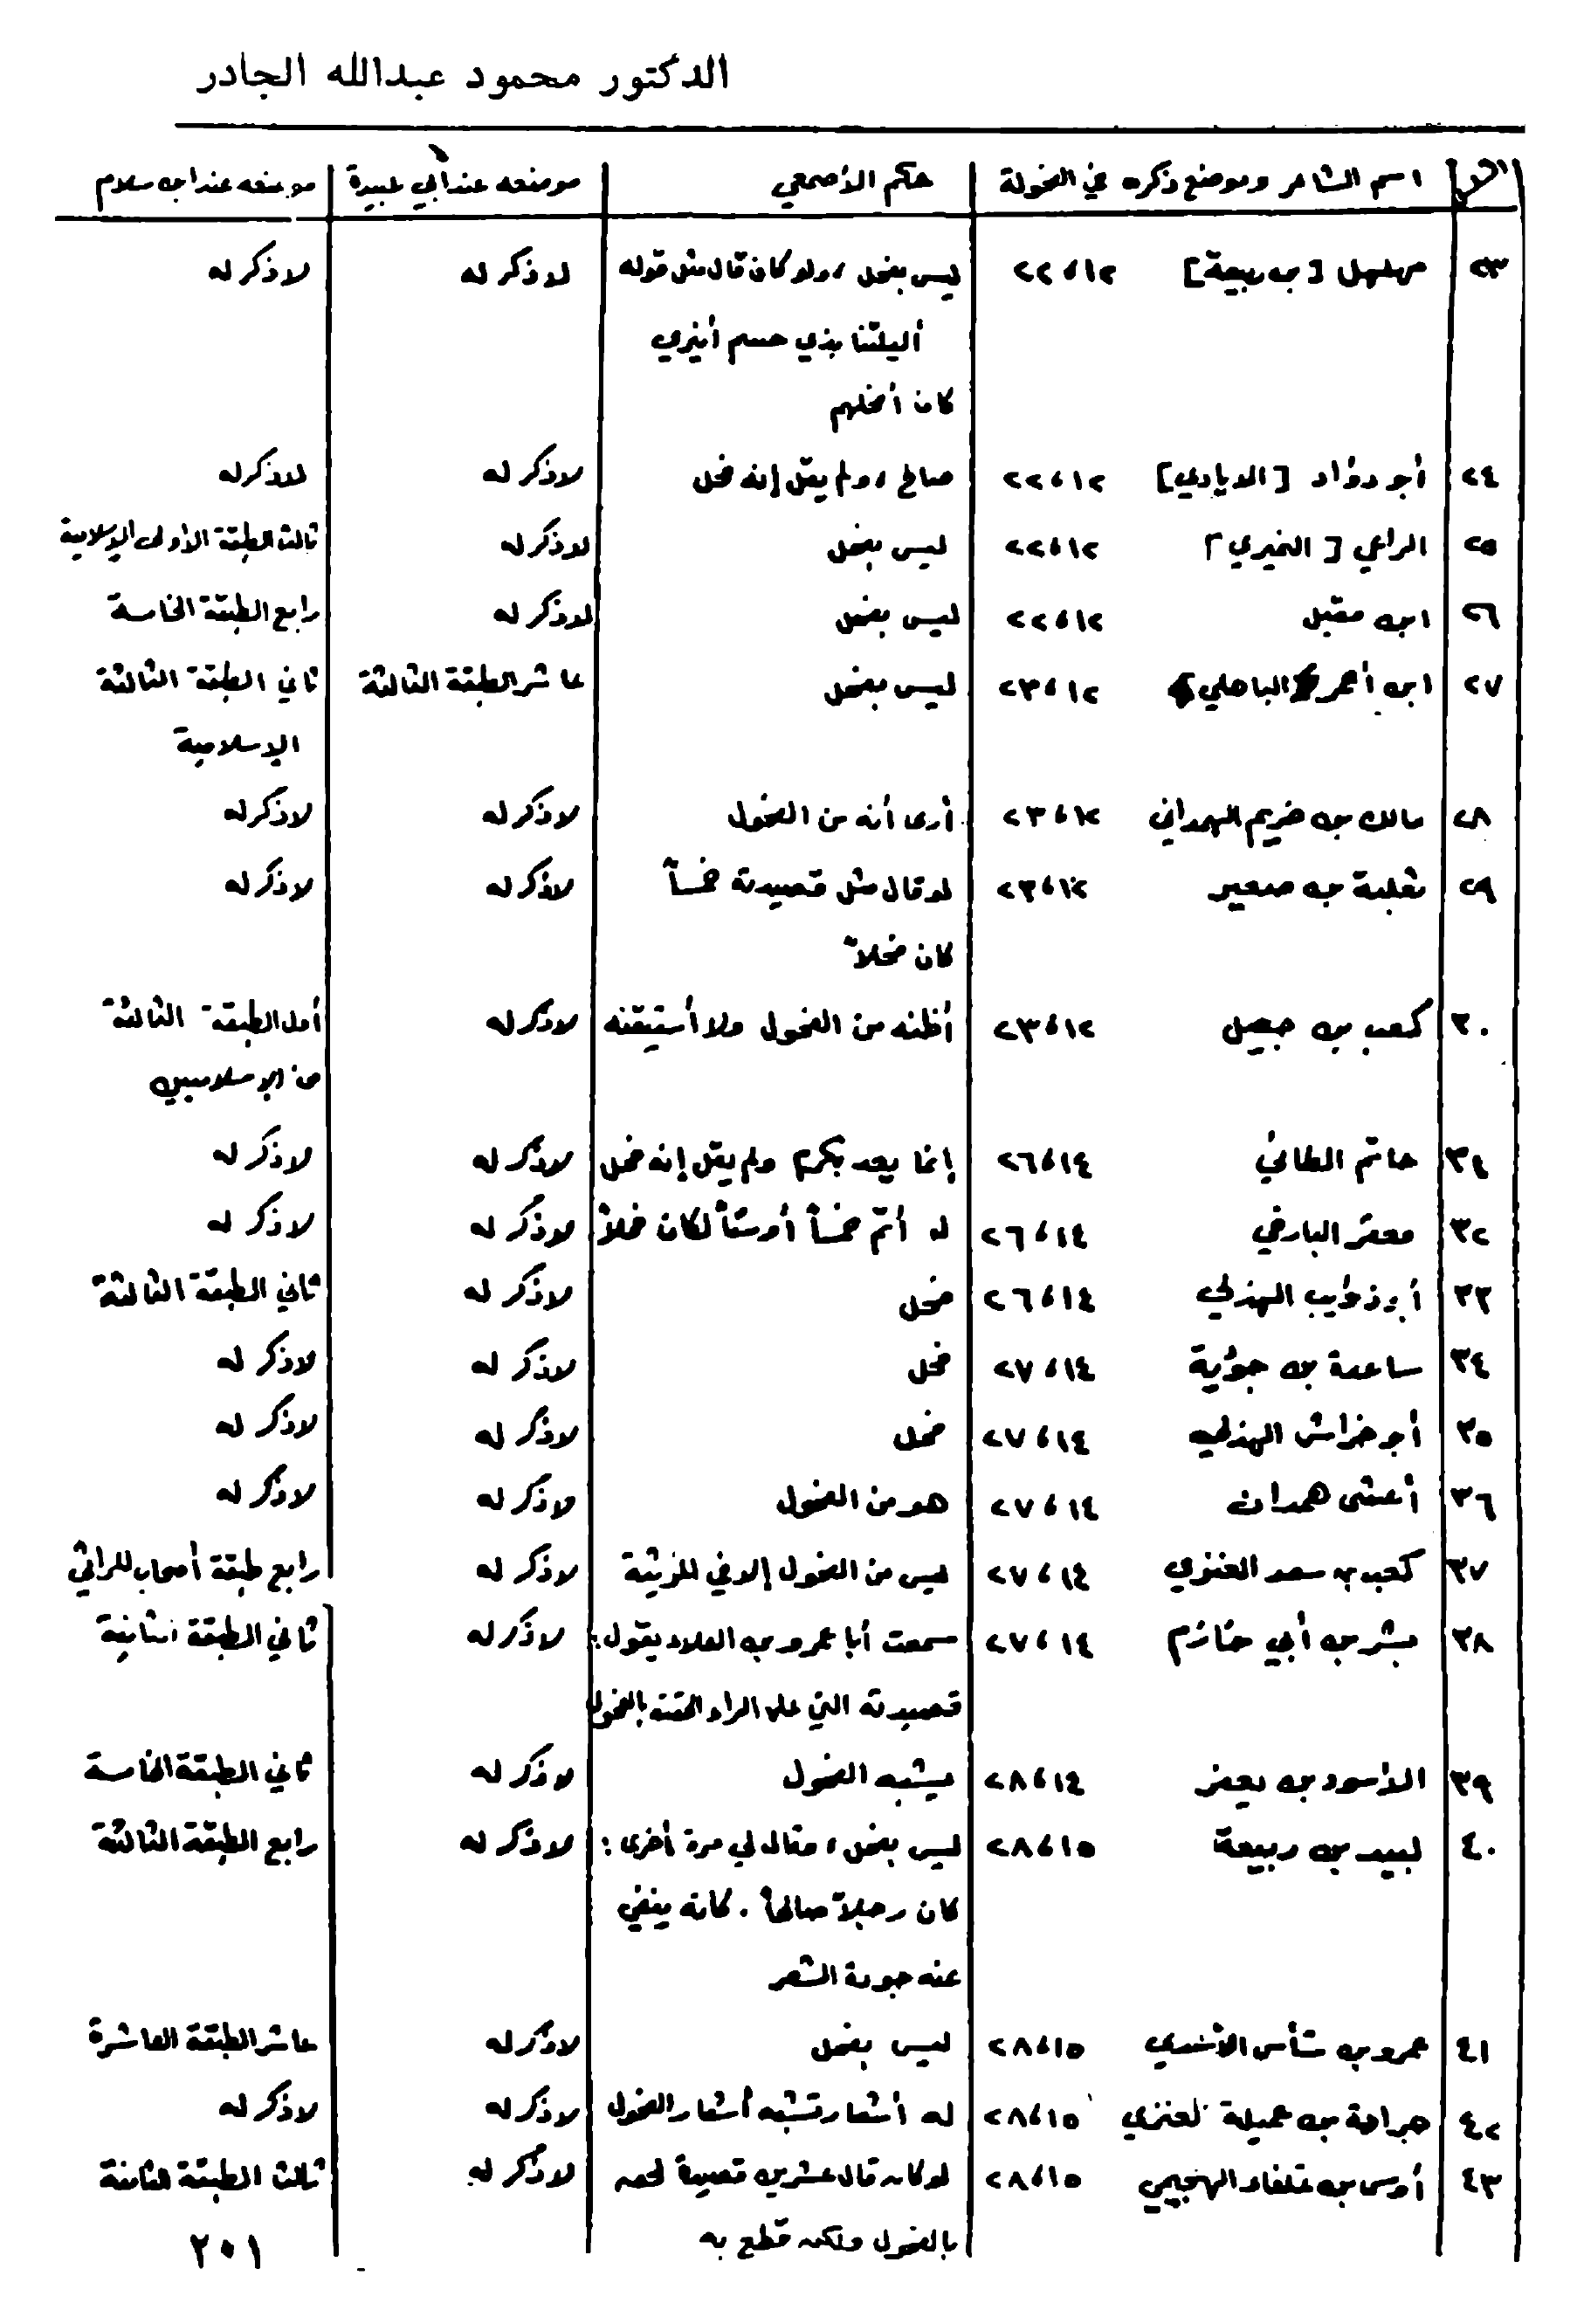 الدكتور محمود عبدالله الجادر
اسم الشاعر وموضع ذكره في الفحولة | حكم الأصمعي | موضعه عند أبي عبيدة | موضعه عند ابن سلام
٢٣ | مهلهل [بن ربيعة] ١٢، ٢٢ | ليس بفحل، ولو كان قال مثل قوله | لا ذكر له | لا ذكر له
أليلتنا بذي حسم أنيري
كان أفحلهم
٢٤ | أبو دؤاد [الايادي] ١٢، ٢٢ | صالح، ولم يقل إنه فحل | لا ذكر له | لا ذكر له
٢٥ | الراعي [النميري] ١٢، ٢٢ | ليس بفحل | لا ذكر له | ثالث الطبقة الأولى الإسلامية
٢٦ | ابن مقبل ١٢، ٢٢ | ليس بفحل | لا ذكر له | رابع الطبقة الخامسة
٢٧ | ابن أحمر [الباهلي] ١٢، ٢٣ | ليس بفحل | عاشر الطبقة الثالثة | ثاني الطبقة الثالثة
الإسلامية
٢٨ | مالك بن حريم الهمداني ١٢، ٢٣ | أرى أنه من الفحول | لا ذكر له | لا ذكر له
٢٩ | ثعلبة بن صعير ١٢، ٢٣ | لو قال مثل قصيدته خمساً | لا ذكر له | لا ذكر له
كان فحلاً
٣٠ | كعب بن جعيل ١٢، ٢٣ | أظنه من الفحول ولا أستيقنه | لا ذكر له | أول الطبقة الثالثة
من الإسلاميين
٣١ | حاتم الطائي ١٤، ٢٦ | إنما يعد بكرم ولم يقل إنه فحل | لا ذكر له | لا ذكر له
٣٢ | معقر البارقي ١٤، ٢٦ | لو أتم خمساً أو ستاً لكان فحلاً | لا ذكر له | لا ذكر له
٣٣ | أبو ذؤيب الهذلي ١٤، ٢٦ | فحل | لا ذكر له | ثاني الطبقة الثالثة
٣٤ | ساعدة بن جؤية ١٤، ٢٧ | فحل | لا ذكر له | لا ذكر له
٣٥ | أبو خراش الهذلي ١٤، ٢٧ | فحل | لا ذكر له | لا ذكر له
٣٦ | أعشى همدان ١٤، ٢٧ | هو من الفحول | لا ذكر له | لا ذكر له
٣٧ | كعب بن سعد الغنوي ١٤، ٢٧ | ليس من الفحول إلا في المرثية | لا ذكر له | رابع طبقة أصحاب المراثي
٣٨ | بشر بن أبي خازم ١٤، ٢٧ | سمعت أبا عمرو بن العلاء يقول: | لا ذكر له | ثاني الطبقة الثانية
قصيدته التي على الراء ألحقته بالفحول
٣٩ | الأسود بن يعفر ١٤، ٢٨ | يشبه الفحول | لا ذكر له | ثاني الطبقة الخامسة
٤٠ | لبيد بن ربيعة ١٥، ٢٨ | ليس بفحل، وقال لي مرة أخرى: | لا ذكر له | رابع الطبقة الثالثة
كان رجلاً صالحاً. كأنه ينفي
عنه جودة الشعر
٤١ | عمرو بن شأس الأسدي ١٥، ٢٨ | ليس بفحل | لا ذكر له | عاشر الطبقة العاشرة
٤٢ | جرادة بن عميلة العنزي ١٥، ٢٨ | له أشعار تشبه أشعار الفحول | لا ذكر له | لا ذكر له
٤٣ | أوس بن غلفاء الهجيمي ١٥، ٢٨ | لو كان قال عشرين قصيدة لحق | لا ذكر له | ثالث الطبقة الثامنة
بالفحول ولكنه قطع به
٢٠١